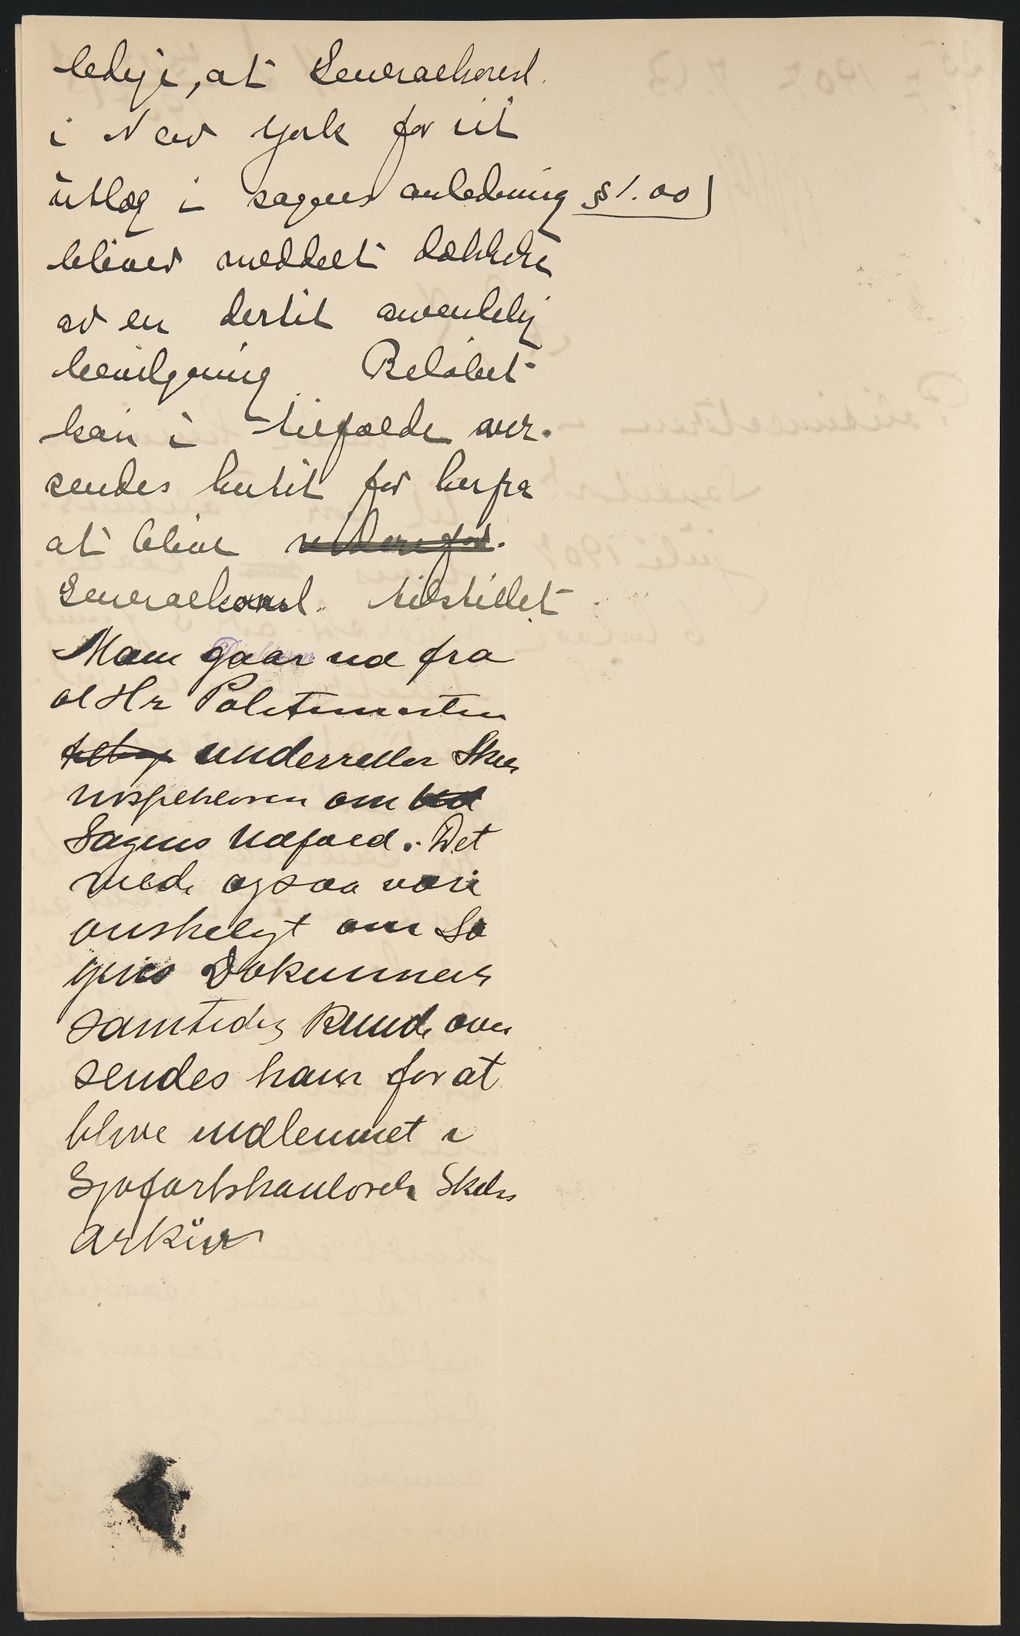 ledige, at Generalkonsl.
i New York for sit
utlæg i sagens anledning $1.00)
bliver meddelt dækket
av en dertil anvendelig
bevilgning. Beløbet
kan i tilfælde over-
sendes hertil for herfra
at blive videre ford.
Generalkonsl. tilstillet
Man gaar ud fra
at Hr Politimesteren
underretter Skibs
inspektøren om
Sagens Udfald. Det
vilde ogsaa være
ønskeligt om Sa
gens Dokumenter
samtidig kunde over
sendes ham for at
blive indlemmet i
Sjøfartskontorets Skibs
arkiv